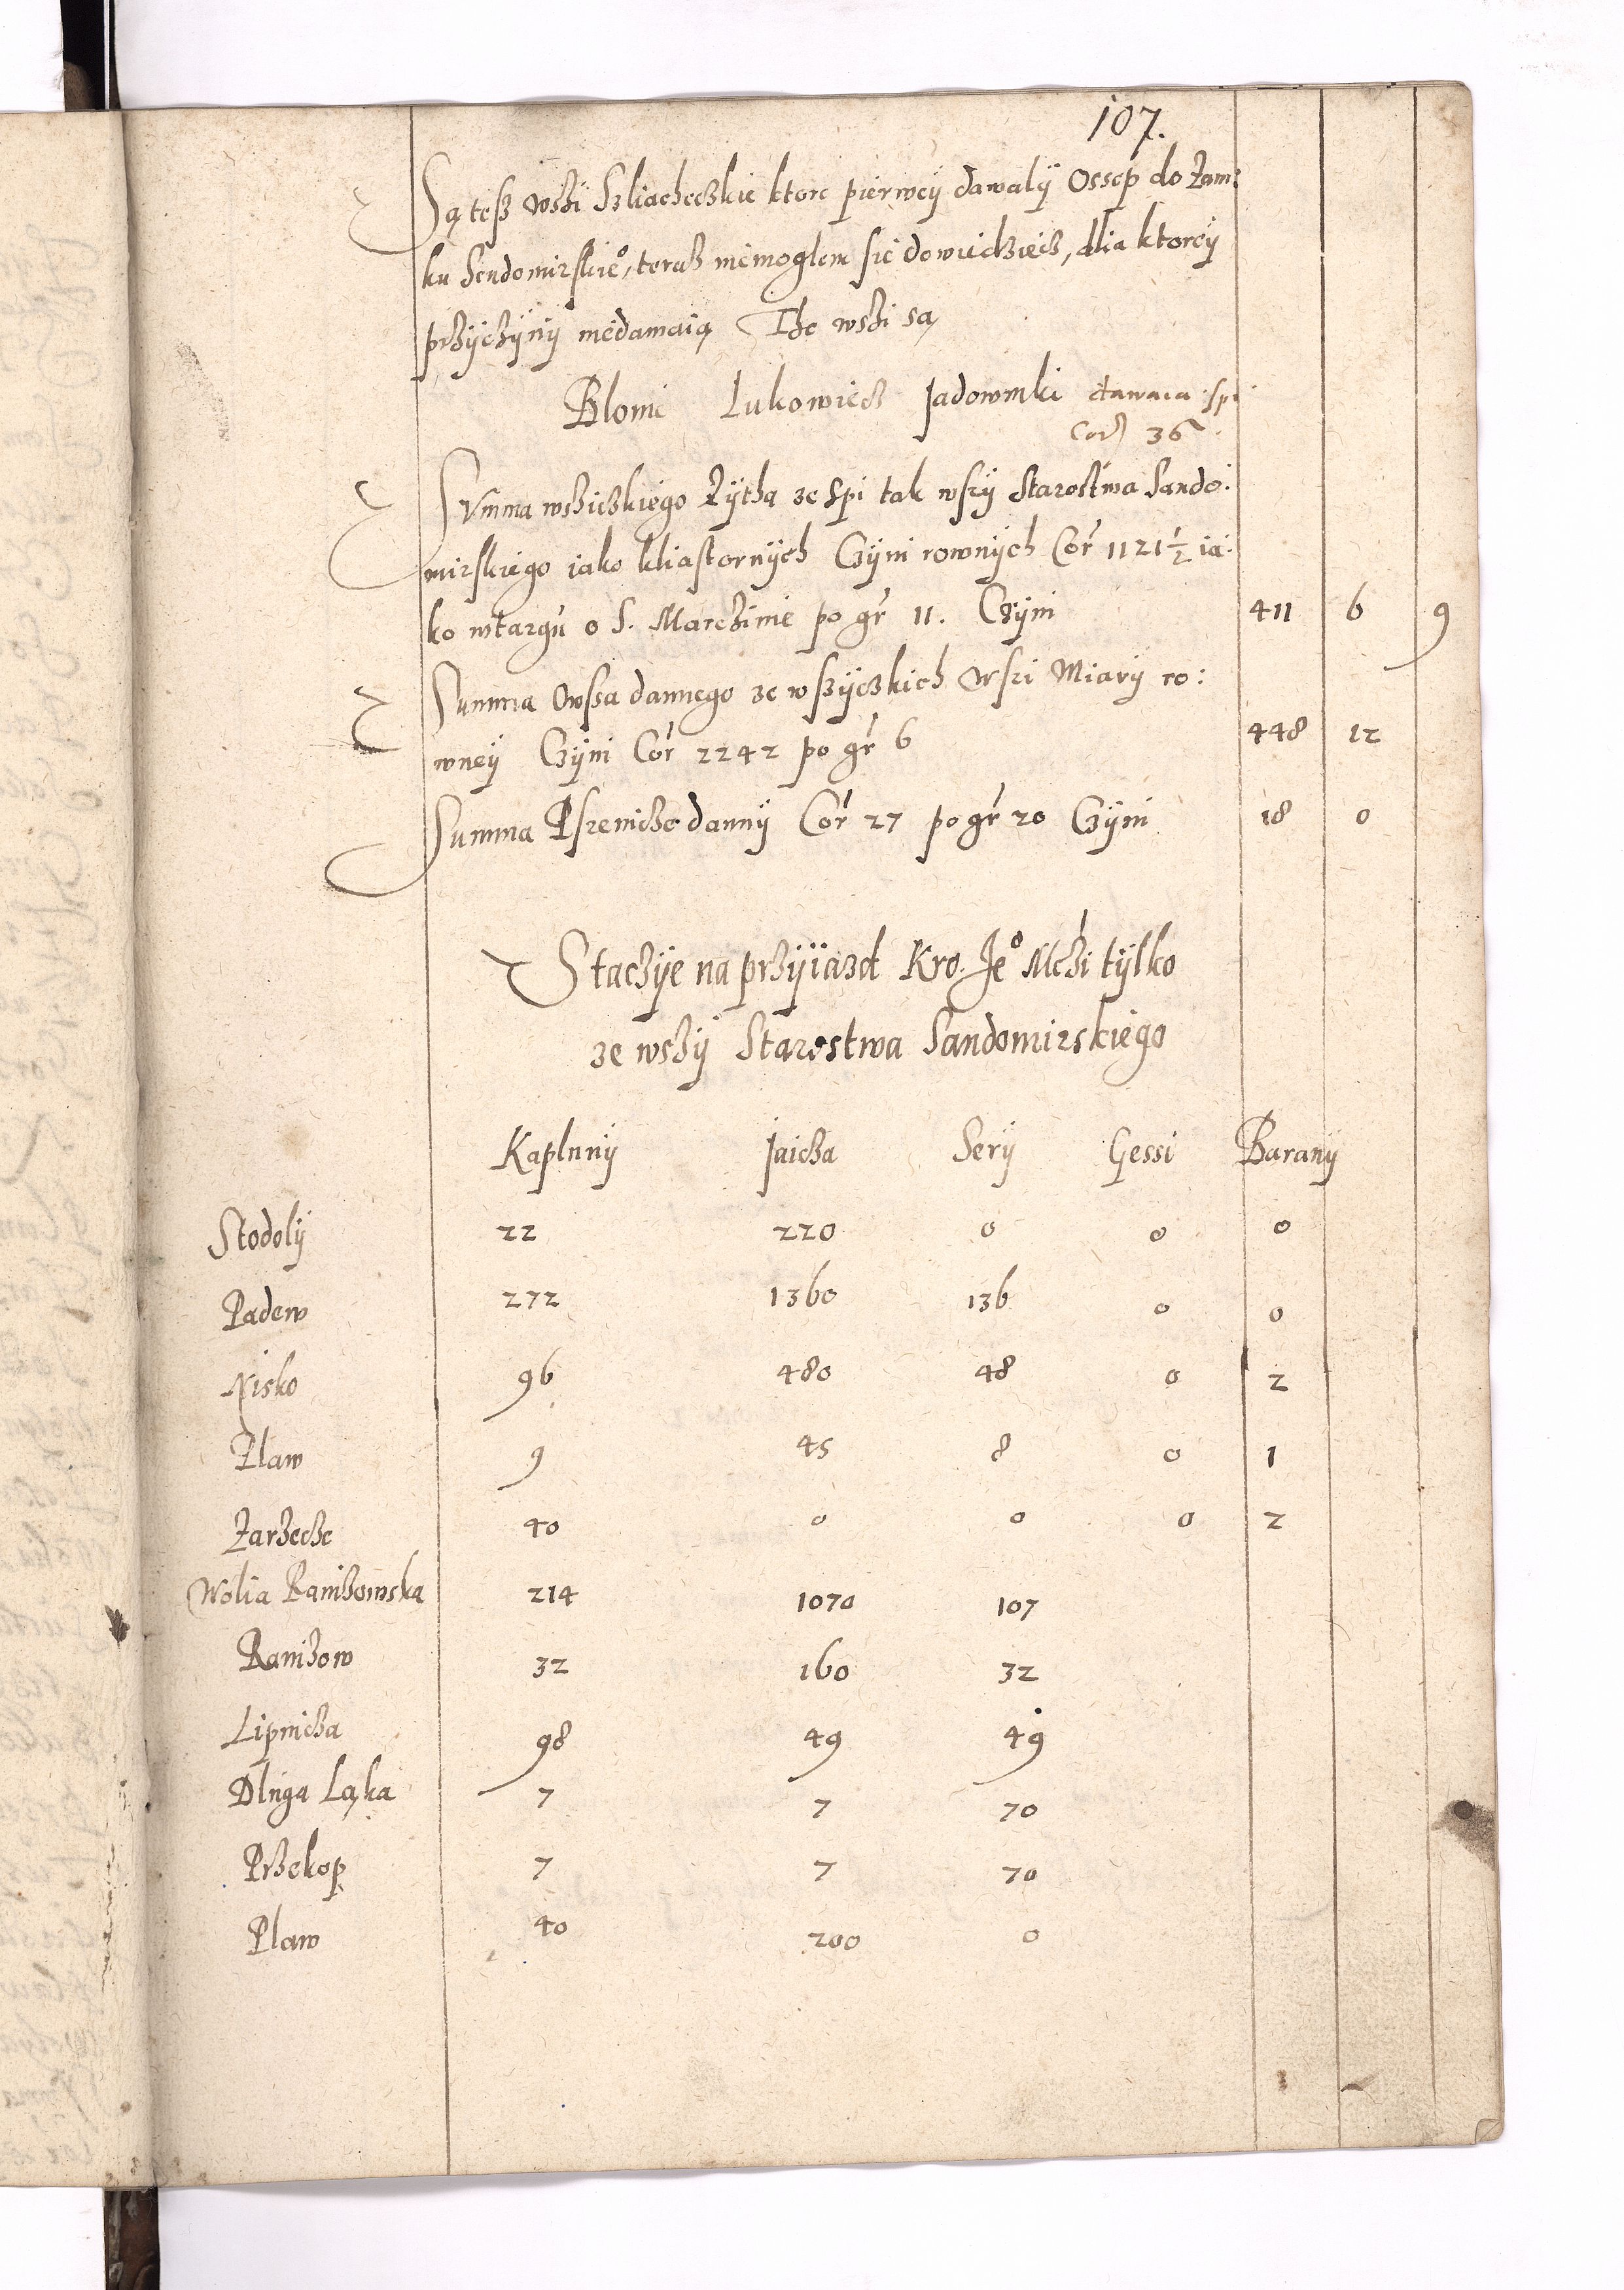 107.
Są tesz wszi Szliacheczkie ktore pierwey dawalÿ Ossep do Zam:
ku Sendomirskieº, teraz niemoglem sie dowiedziecz, dlia ktorey
przÿczÿnÿ niedawaią The wszi są
Blonie Lukowiecz Jadowniki dawaia spi
Cor 36
Summa wsziczkiego Zÿtha ze spi tak wszÿ Starostwa Sando:
mirskiego iako kliastornÿch Czÿni rownÿch Cor 1121½ ia:
ko wtargu o S. Marczinie po gr 11. Czÿni 411 6 9
Summa Owssa dannego ze wszÿczkich wszi Miarÿ ro:
wneÿ Czÿni Cor 2242 po gr 6 448 12
Summa Pszenicze dannÿ Cor 27 po gr 20 Czÿni 18 0
Staczÿe na przÿiazd Kro. Jeº Mczi tÿlko
ze wszÿ Starostwa Sandomirskiego
Kaplunÿ Jaicza Serÿ Gessi Baranÿ
Stodolÿ 22 220 0 0 0
Padew 272 1360 136 0 0
Nisko 96 480 48 0 2
Plaw 9 45 8 0 1
Zarzecze 40 0 0 0 2
Wolia Ranizowska 214 1070 107
Ranizow 32 160 32
Lipnicza 98 49 49
Dluga Ląka 7 7 70
Przekop 7 7 70
Plaw 40 200 0